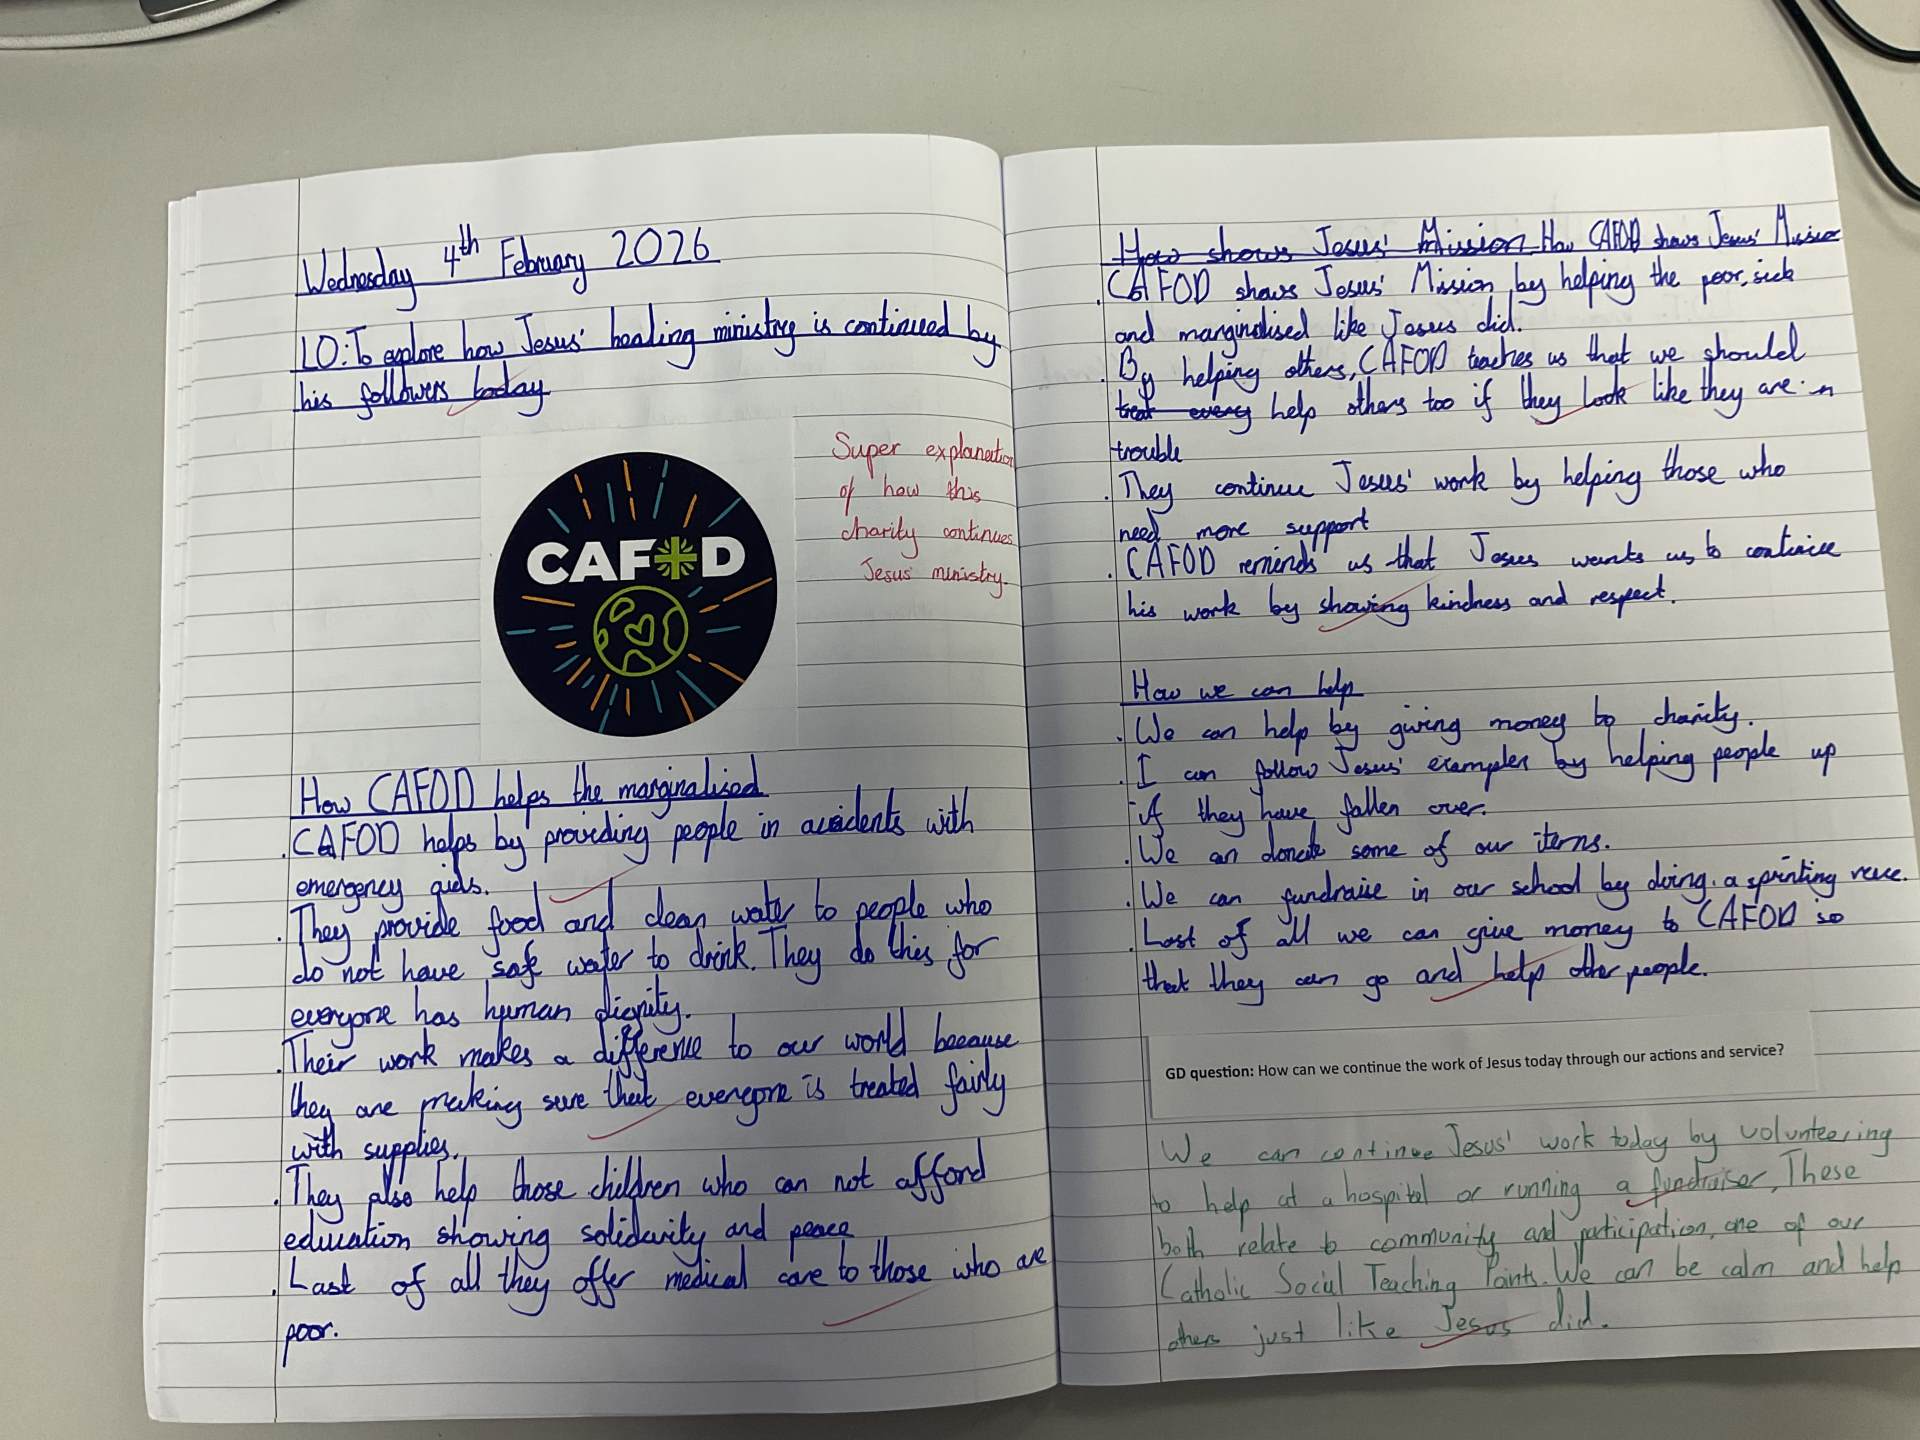 Wednesday 4th February 2026
LO: To explore how Jesus' healing ministry is continued by
his followers today
CAFOD
Super explanation
of how this
charity continues
Jesus' ministry.
How CAFOD helps the marginalised
. CAFOD helps by providing people in accidents with
emergency aids.
. They provide food and clean water to people who
do not have safe water to drink. They do this for
everyone has human dignity.
. Their work makes a difference to our world because
they are making sure that everyone is treated fairly
with supplies.
. They also help those children who can not afford
education showing solidarity and peace
. Last of all they offer medical care to those who are
poor.
How shows Jesus' Mission How CAFOD shows Jesus' Mission
. CAFOD shows Jesus' Mission by helping the poor, sick
and marginalised like Jesus did.
. By helping others, CAFOD teaches us that we should
treat every help others too if they look like they are in
trouble
. They continue Jesus' work by helping those who
need more support
. CAFOD reminds us that Jesus wants us to continue
his work by showing kindness and respect.
How we can help
. We can help by giving money to charity.
. I can follow Jesus' examples by helping people up
if they have fallen over.
. We can donate some of our items.
. We can fundraise in our school by doing a sprinting race.
. Last of all we can give money to CAFOD so
that they can go and help other people.
GD question: How can we continue the work of Jesus today through our actions and service?
We can continue Jesus' work today by volunteering
to help at a hospital or running a fundraiser, These
both relate to community and participation, one of our
Catholic Social Teaching Points. We can be calm and help
others just like Jesus did.